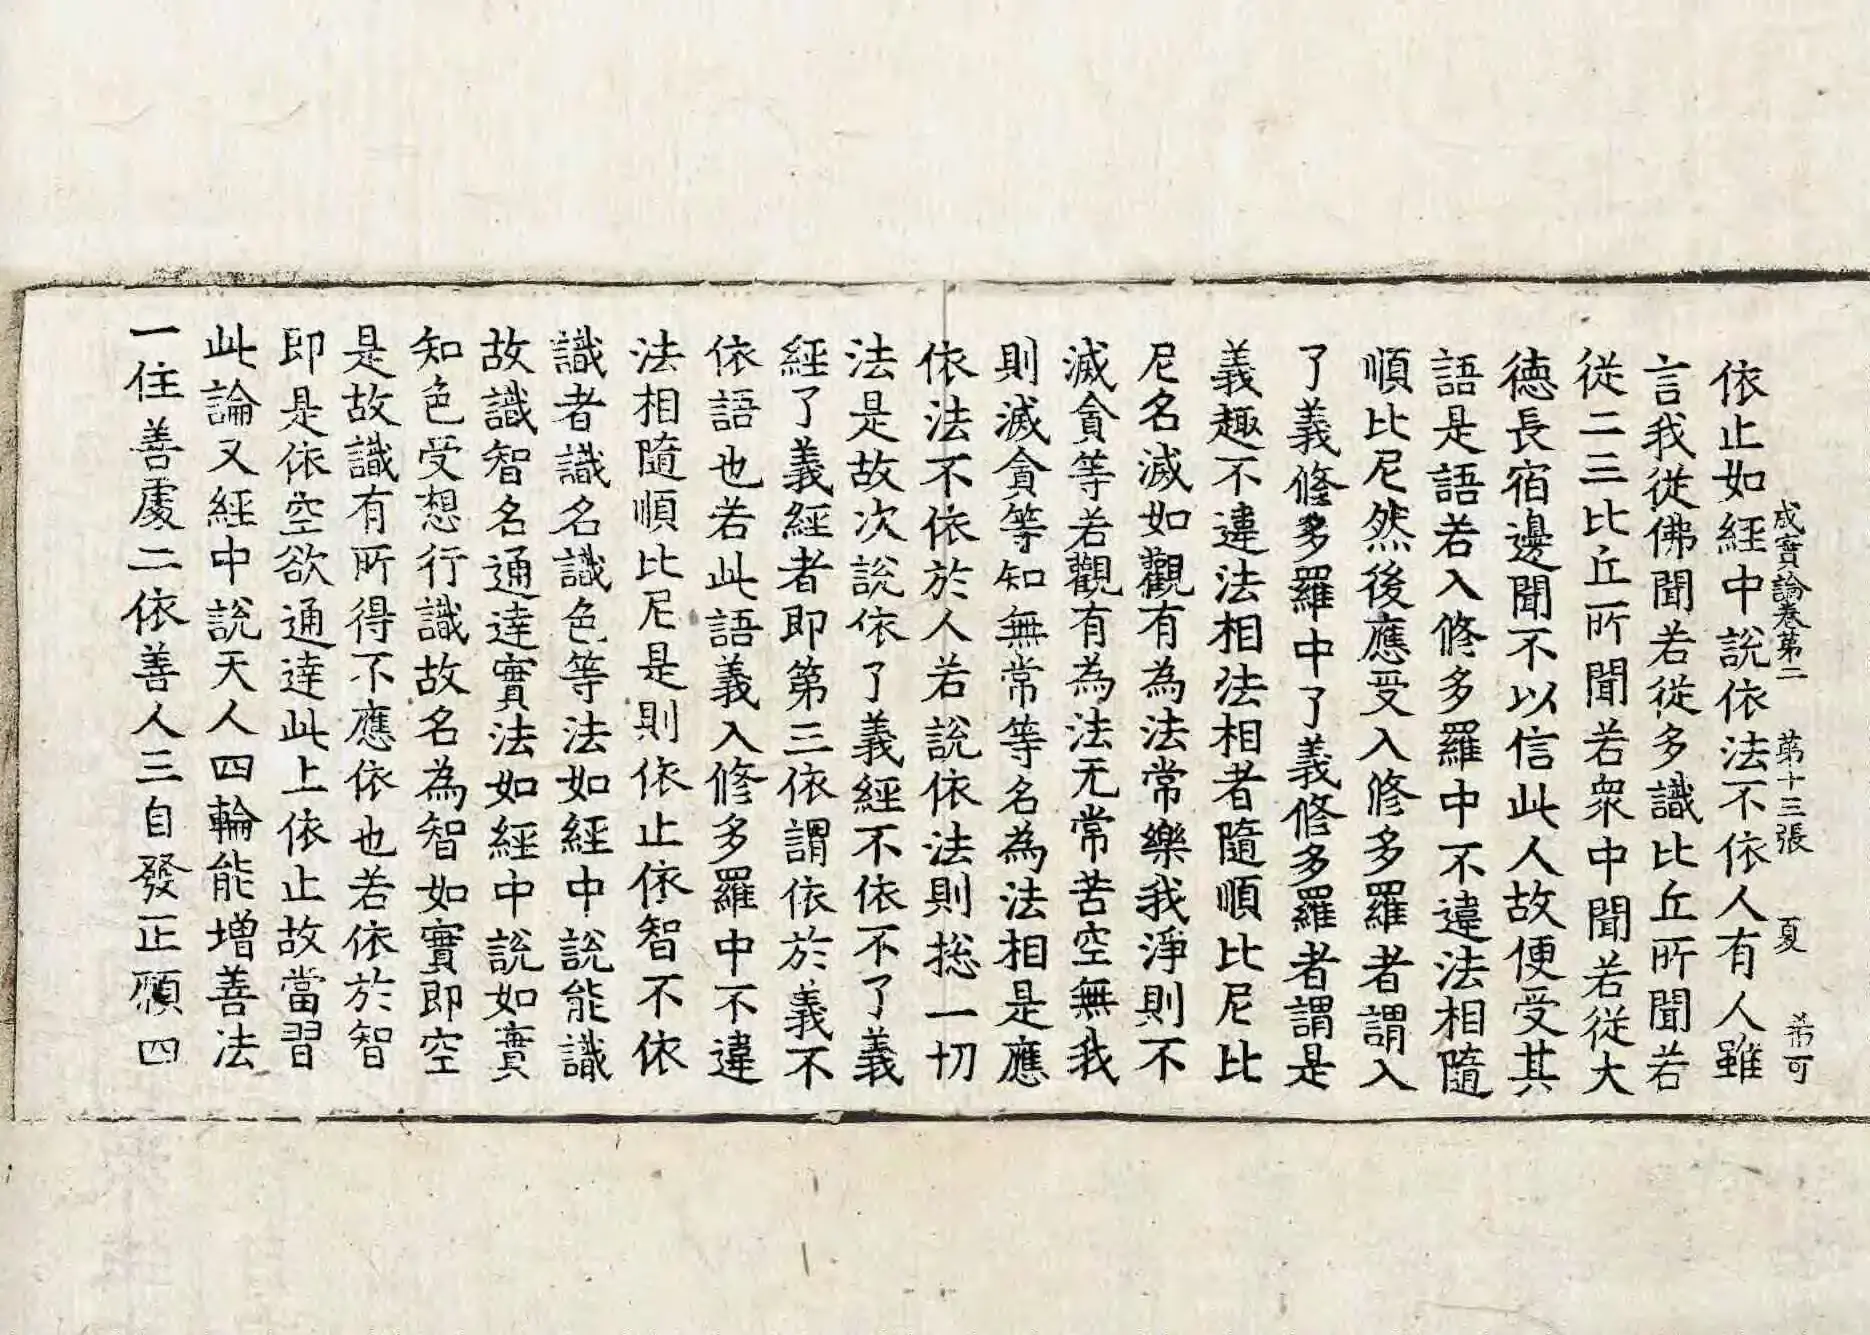 成實論卷第二 第十三張 夏 希可
依止如經中說依法不依人有人雖
言我從佛聞若從多識比丘所聞若
從二三比丘所聞若衆中聞若從大
德長宿邊聞不以信此人故便受其
語是語若入修多羅中不違法相隨
順比尼然後應受入修多羅者謂入
了義修多羅中了義修多羅者謂是
義趣不違法相法相者隨順比尼比
尼名滅如觀有為法常樂我淨則不
滅貪等若觀有為法无常苦空無我
則滅貪等知無常等名為法相是應
依法不依於人若說依法則揔一切
法是故次說依了義經不依不了義
經了義經者即第三依謂依於義不
依語也若此語義入修多羅中不違
法相隨順比尼是則依止依智不依
識者識名識色等法如經中說能識
故識智名通達實法如經中說如實
知色受想行識故名為智如實即空
是故識有所得不應依也若依於智
即是依空欲通達此上依止故當習
此論又經中說天人四輪能增善法
一住善處二依善人三自發正願四